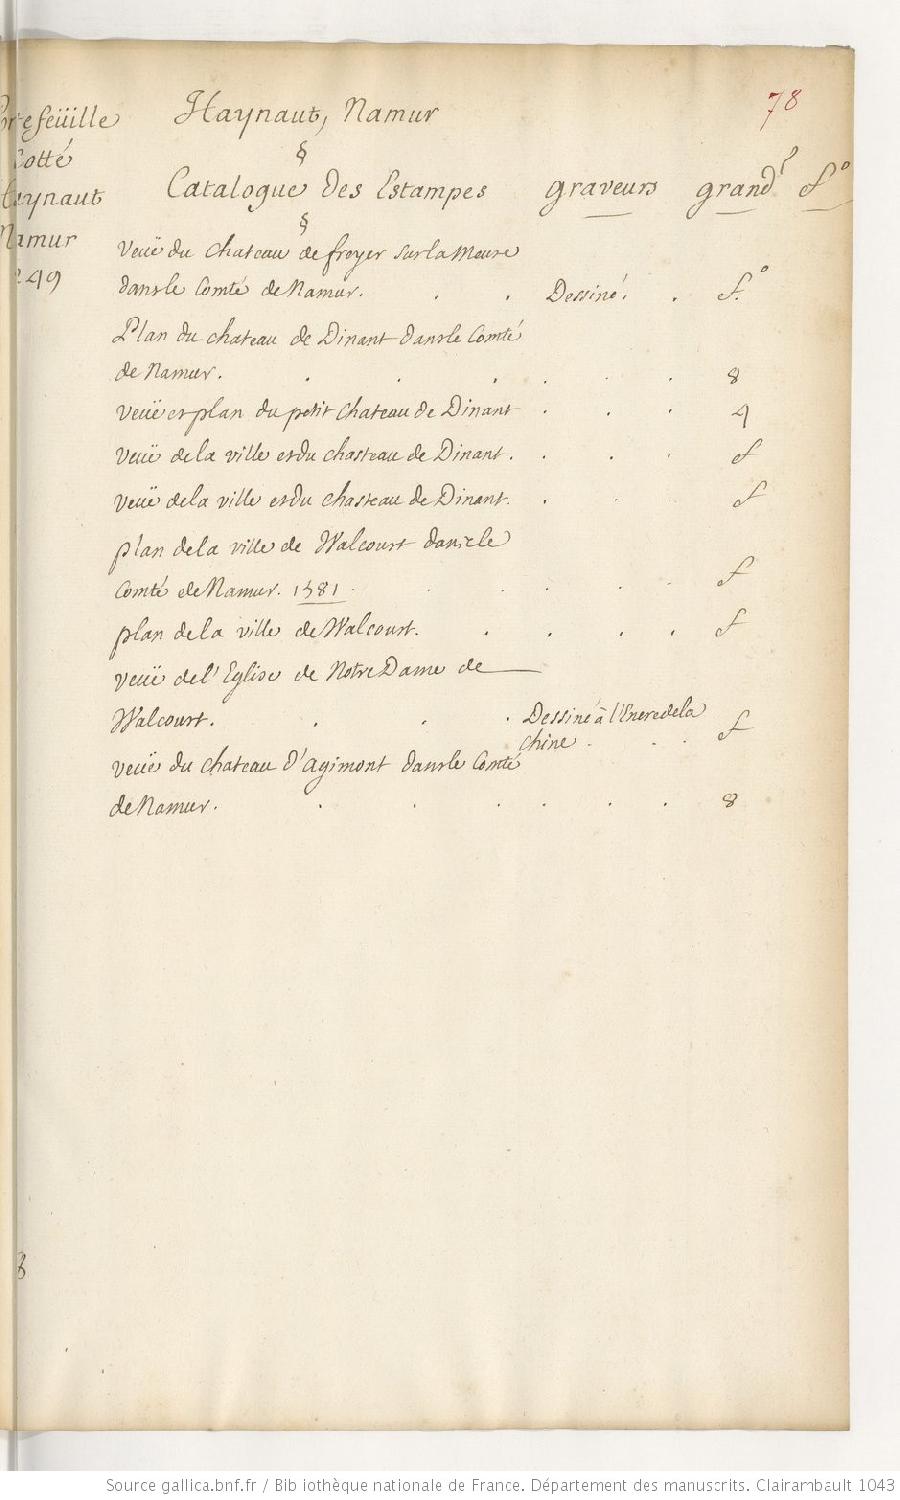 78
Portefeüille
Cotté
Haynaut
Namur
249
Haynaut, Namur
§
Catalogue Des Estampes graveurs grandr fo
§
Veuë du chateau de freyer sur la Meuse
dans le Comté de Namur. . . Dessiné. . fo
Plan du chateau de Dinant dans le Comté
de Namur. . . . . . . 8
veuë et plan du petit chateau de Dinant . . . 4
Veuë de la ville et du chasteau de Dinant . . . . f
veuë de la ville et du chasteau de Dinant. . . f
plan de la ville de Walcourt dans le
Comté de Namur. 1581 . . . . . f
plan de la ville de Walcourt. . . . . f
veuë de l'Eglise de Notre Dame de
Walcourt. . . . Dessiné à l'Encre de la
chine . . . f
veuë du chateau D'agimont dans le Comté
de Namur. . . . . . . 8
Source gallica.bnf.fr / Bibliothèque nationale de France. Département des manuscrits. Clairambault 1043